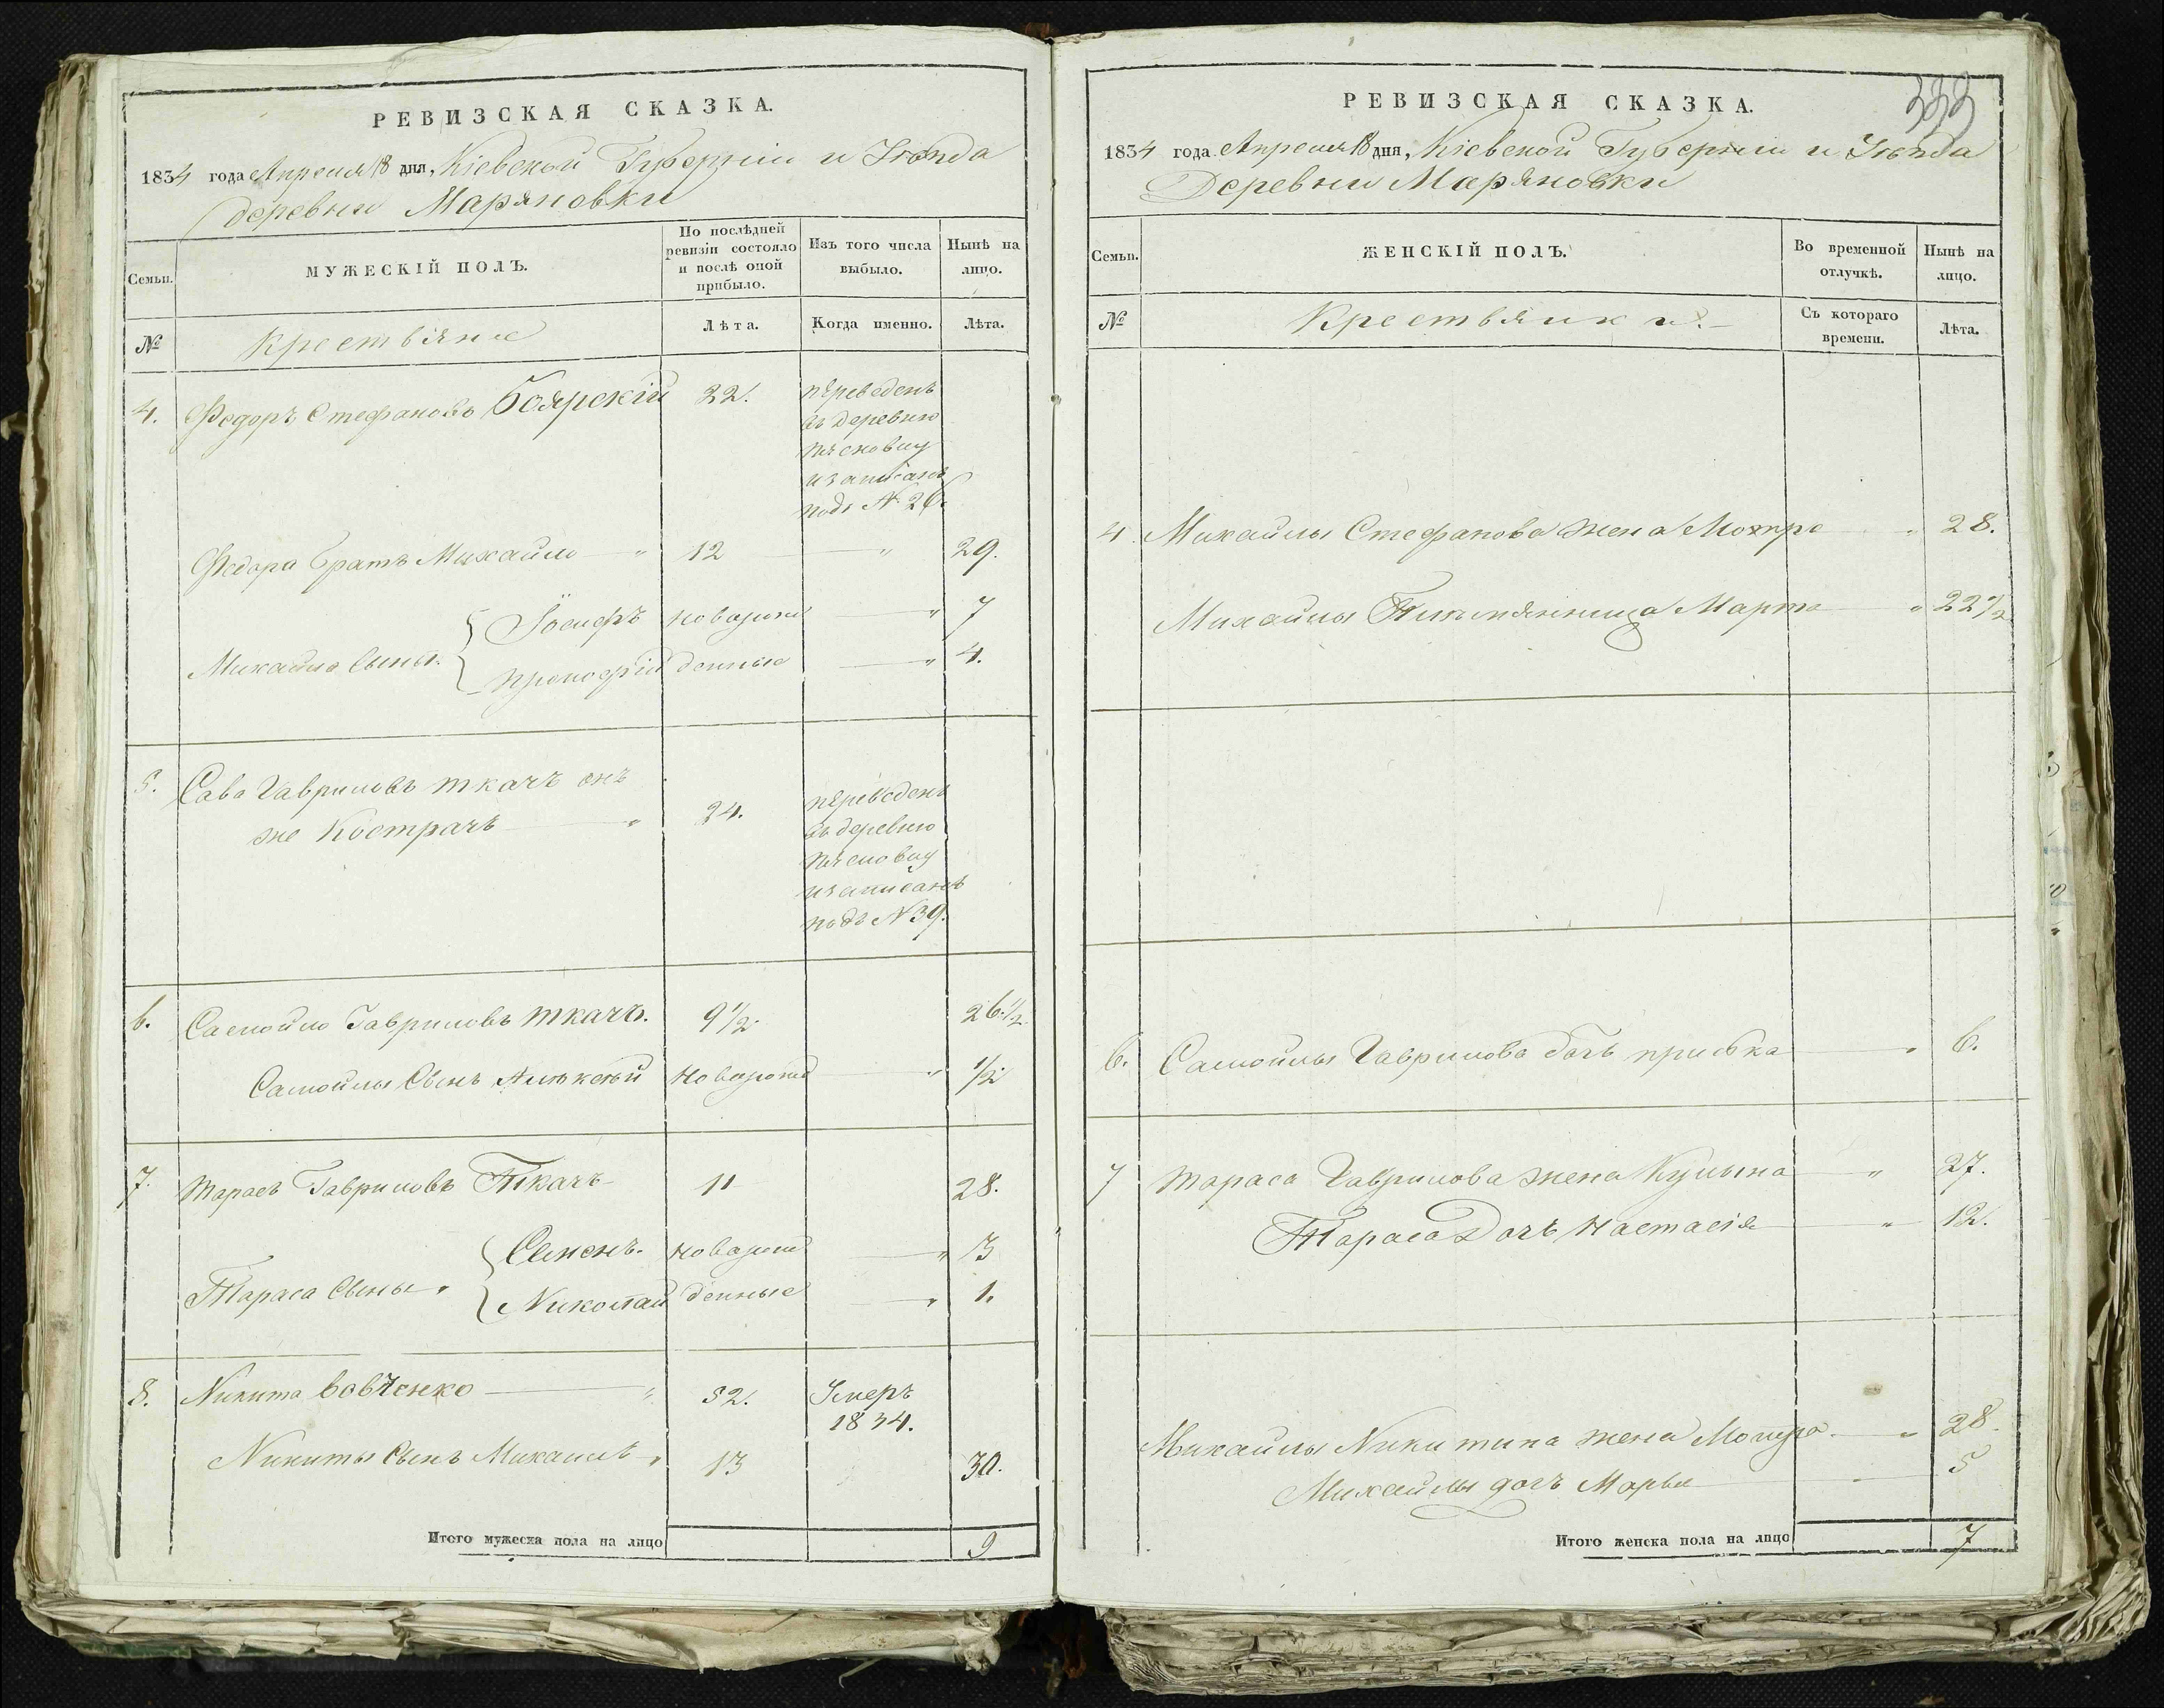 РЕВИЗСКАЯ СКАЗКА.
1834 года Апреля 18 дня, Кіевской Губерніи и Уѣзда
деревни Маряновки
Семьи.
МУЖЕСКІЙ ПОЛЪ.
По послѣдней ревизіи состояло и послѣ оной прибыло.
Изъ того числа выбыло.
Нынѣ на лицо.
№
крестьяне
Лѣта.
Когда именно.
Лѣта.
4. Федоръ Стефановъ Боярскій 22.
переведенъ
въ деревню
записанъ
подъ № 26.
Федора братъ Михайло " 12 " 29.
Михайла Сыны: Іосифъ новорож " 7
Прокофій денные " 4.
5. Сава Гавриловъ ткачъ онъ
же Кострачъ " 24.
переведенъ
въ деревню
и записанъ
подъ № 39.
6. Самойло Гавриловъ ткачъ. 9 1/2. 26 1/2.
Самойлы Сынъ Алѣксѣй новорожд " 1/2
7. Тарасъ Гавриловъ Ткачъ 11 28.
Тараса Сыны. Семенъ. новорож " 3
Николай денные " 1.
8. Никита Вовченко " 52. Умеръ
1834.
Никиты Сынъ Михаилъ " 13 30.
Итого мужеска пола на лицо 9
333
РЕВИЗСКАЯ СКАЗКА.
1834 года Апреля 18 дня, Кіевской Губерніи и Уѣзда
Деревни Маряновки
Семьи.
ЖЕНСКІЙ ПОЛЪ.
Во временной отлучкѣ.
Нынѣ на лицо.
№
Крестьянки
Съ котораго времени.
Лѣта.
4. Михайлы Стефанова жена Мотре " 28.
Михайлы Племянница Марта " 22 1/2
6. Самойлы Гаврилова дочь приська " 6.
7 Тараса Гаврилова жена Кулына " 27.
Тараса Дочь Настасія " 12.
Михайлы Никитина жена Мотра " 28.
Михайлы дочъ Марья 5
Итого женска пола на лицо 7